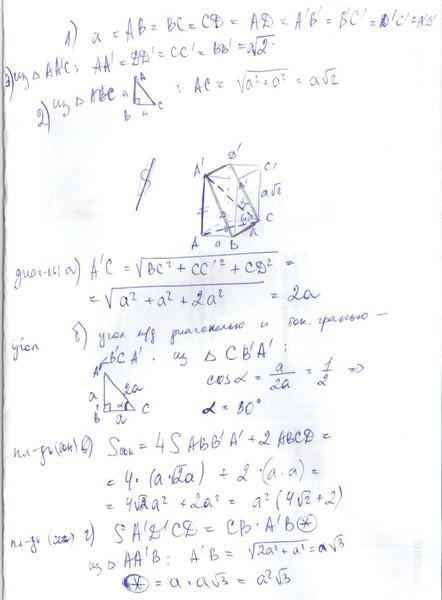 1) a = AB = BC = CD = AD = A'B' = B'C' = D'C' = A'D'
3) из △ AA'C: AA' = DD' = CC' = BB' = a√2.
2) из △ ABC
A
a
B a C
: AC = √a²+a² = a√2
A' D' C'
a√2
A a B a C
диаг-ль: а) A'C = √BC² + CC'² + CD² =
= √a² + a² + 2a² = 2a
угол б) угол м/д диагональю и бок. гранью –
∠B'CA'. из △ CB'A':
A'
a 2a
B' α C
cosα = a/2a = 1/2 =>
α = 30°
пл-дь (бок) в) Sбок = 4 S ABB'A' + 2 ABCD =
= 4 · (a·√2a) + 2 · (a·a) =
= 4√2a² + 2a² = a²(4√2+2)
пл-дь (сеч) г) S A'D'CD = CB · A'B ⊛
из △ AA'B: A'B = √2a²+a² = a√3
⊛ = a · a√3 = a²√3